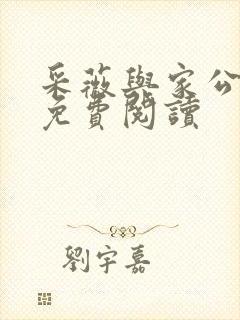 采薇與家公
免費閱讀
劉宇嘉